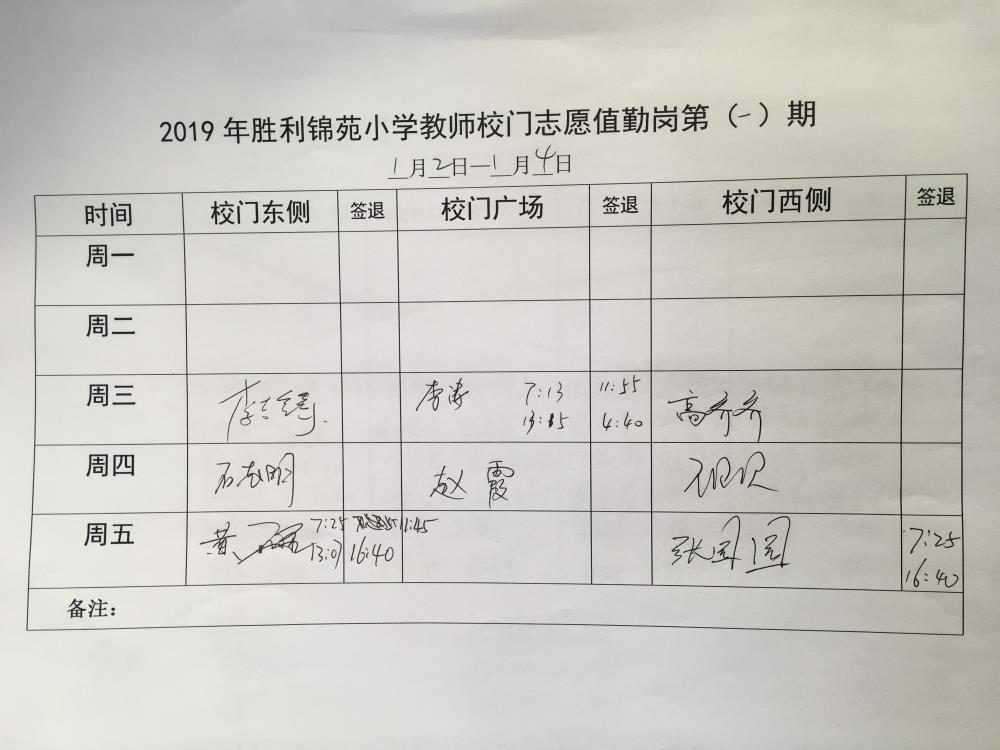 2019年胜利锦苑小学教师校门志愿值勤岗第（一）期
1月2日—1月4日
时间 校门东侧 签退 校门广场 签退 校门西侧 签退
周一
周二
周三 李志 李涛 7:13 11:55 高齐齐
13:15 4:40
周四 石志明 赵霞
周五 黄 7:25 11:45 张园园 7:25
13:07 16:40 16:40
备注：